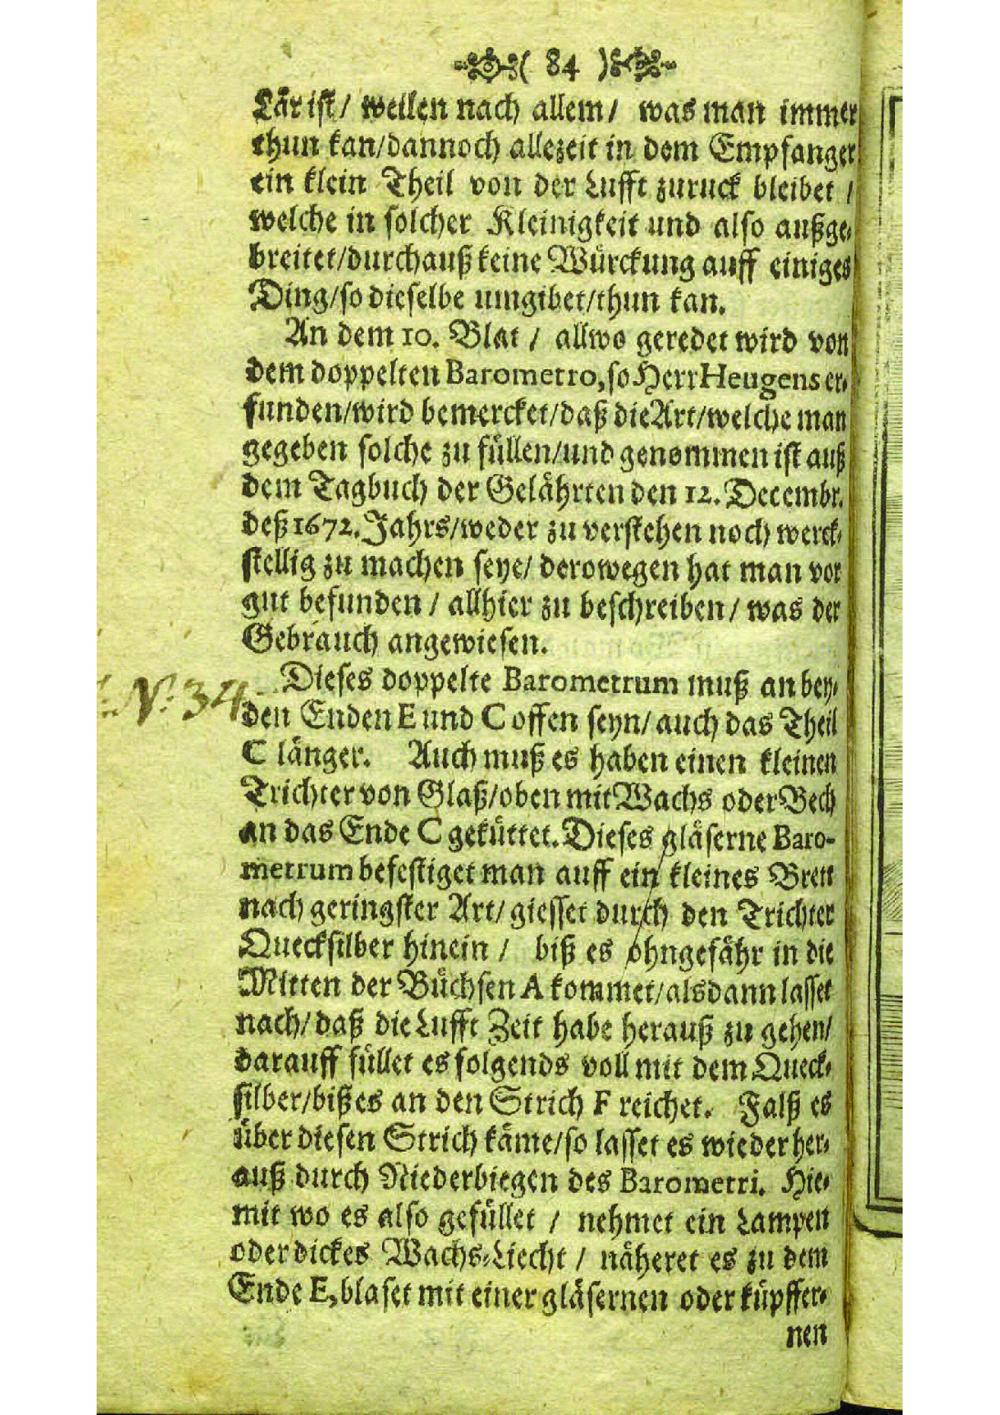 ( 84 )
Lär ist/ weilen nach allem/ was man immer
thun kan/dannoch allezeit in dem Empfanger
ein klein Theil von der Lufft zuruck bleibet /
welche in solcher Kleinigkeit und also außge-
breitet/durchauß keine Würckung auff einiges
Ding/so dieselbe umgibet/thun kan.
An dem 10. Blat / allwo geredet wird von
dem doppelten Barometro, so Herr Heugens er-
funden/wird bemercket/daß die Art/welche man
gegeben solche zu füllen/und genommen ist auß
dem Tagbuch der Gelährten den 12. Decembr.
deß 1672. Jahrs/weder zu verstehen noch werck-
stellig zu machen seye/ derowegen hat man vor
gut befunden / allhier zu beschreiben/ was der
Gebrauch angewiesen.
Dieses doppelte Barometrum muß an bey-
N.º 34
den Enden E und C offen seyn/ auch das Theil
C länger. Auch muß es haben einen kleinen
Trichter von Glaß/oben mit Wachs oder Bech
an das Ende C geküttet. Dieses gläserne Baro-
metrum befestiget man auff ein kleines Brett
nach geringster Art/ giesset durch den Trichter
Quecksilber hinein / biß es ohngefähr in die
Mitten der Büchsen A kommet/alsdann lasset
nach/daß die Lufft Zeit habe herauß zu gehen/
darauff füllet es folgends voll mit dem Queck-
silber/biß es an den Strich F reichet. Falß es
über diesen Strich käme/so lasset es wieder her-
auß durch Niederbiegen des Barometri. Hie-
mit wo es also gefüllet / nehmet ein Lampen
oder dickes Wachs-Liecht / näheret es zu dem
Ende E, blaset mit einer gläsernen oder küpffer-
nen